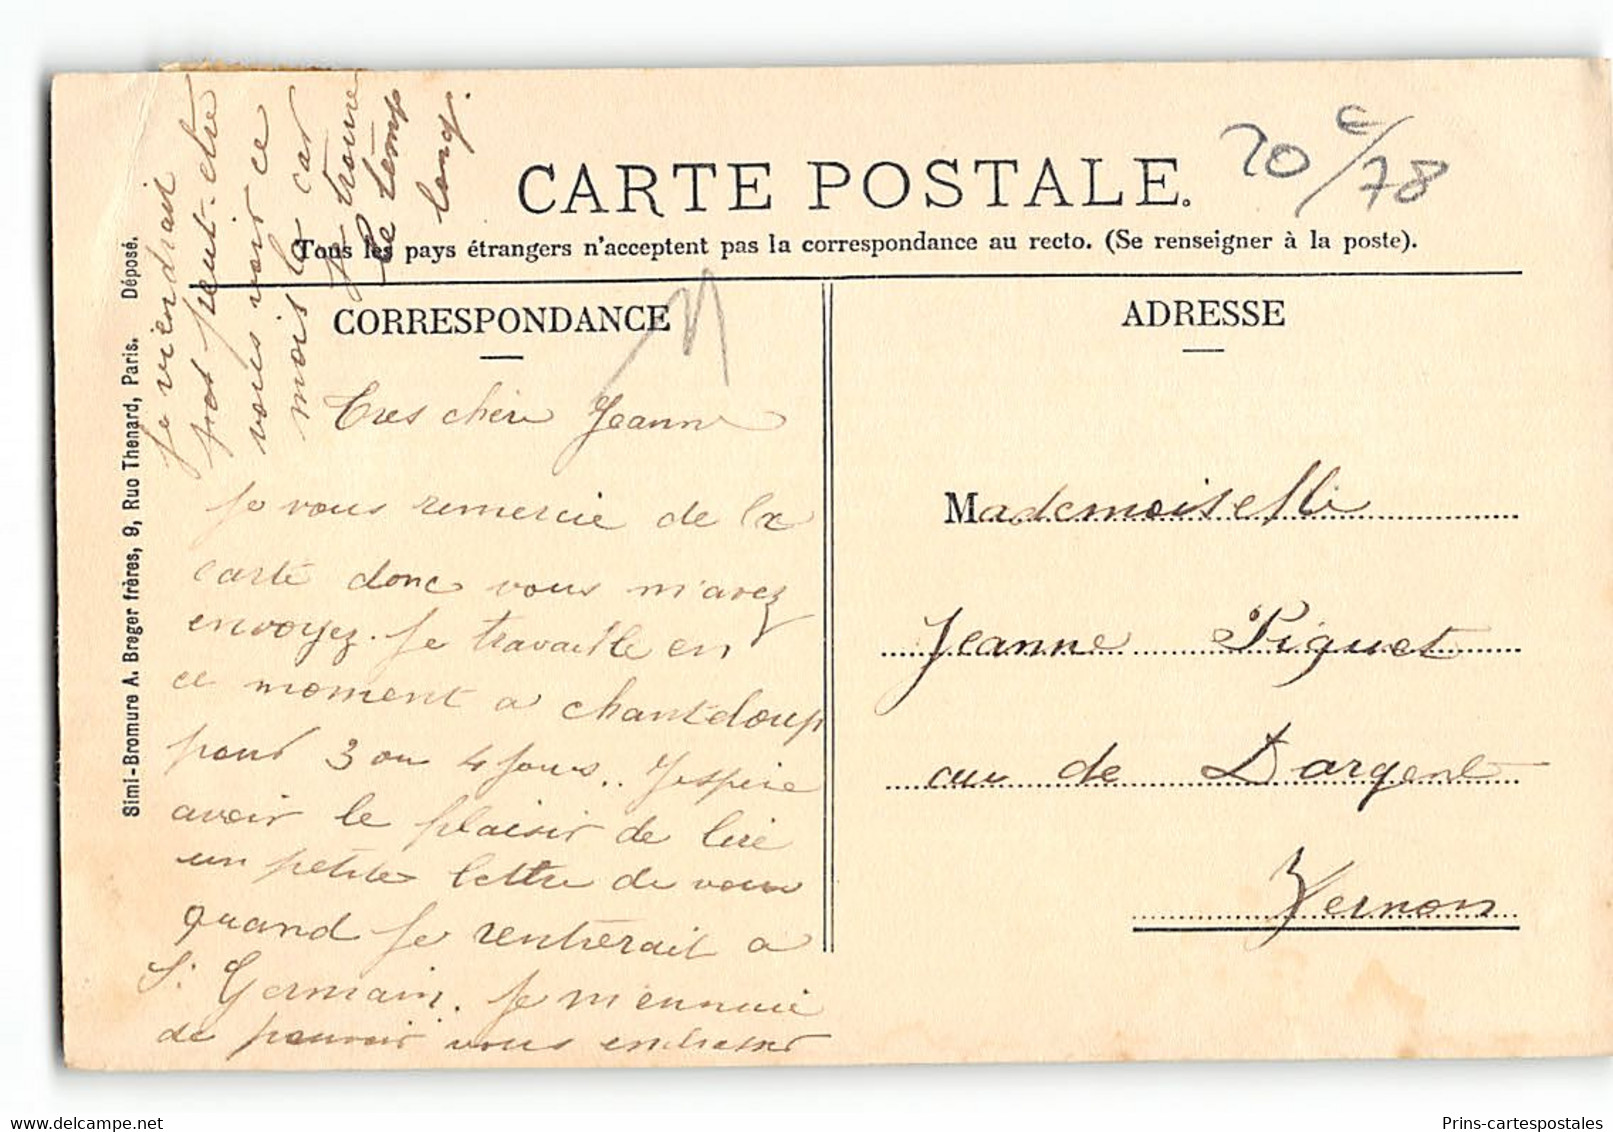 CARTE POSTALE.
20 c/78
Tous les pays étrangers n'acceptent pas la correspondance au recto. (Se renseigner à la poste).
CORRESPONDANCE
Tres chère Jeanne
Je vous remercie de la
carte donc vous m'avez
envoyez. Je travaille en
ce moment a chanteloup
pour 3 ou 4 jours.. J'espère
avoir le plaisir de lire
un petite lettre de vous
quand je rentrerait a
St Germain. Je m'ennuie
de pouvoir vous embrasser
Je viendrait
pas peut-etre
vous voir ce
mois la car
je trouve
le temp
long.
ADRESSE
Mademoiselle
Jeanne Piguet
au de Dargent
Vernon
Simi-Bromure A. Breger frères, 9, Rue Thenard, Paris. Déposé.
delcampe.net
Prins-cartespostales